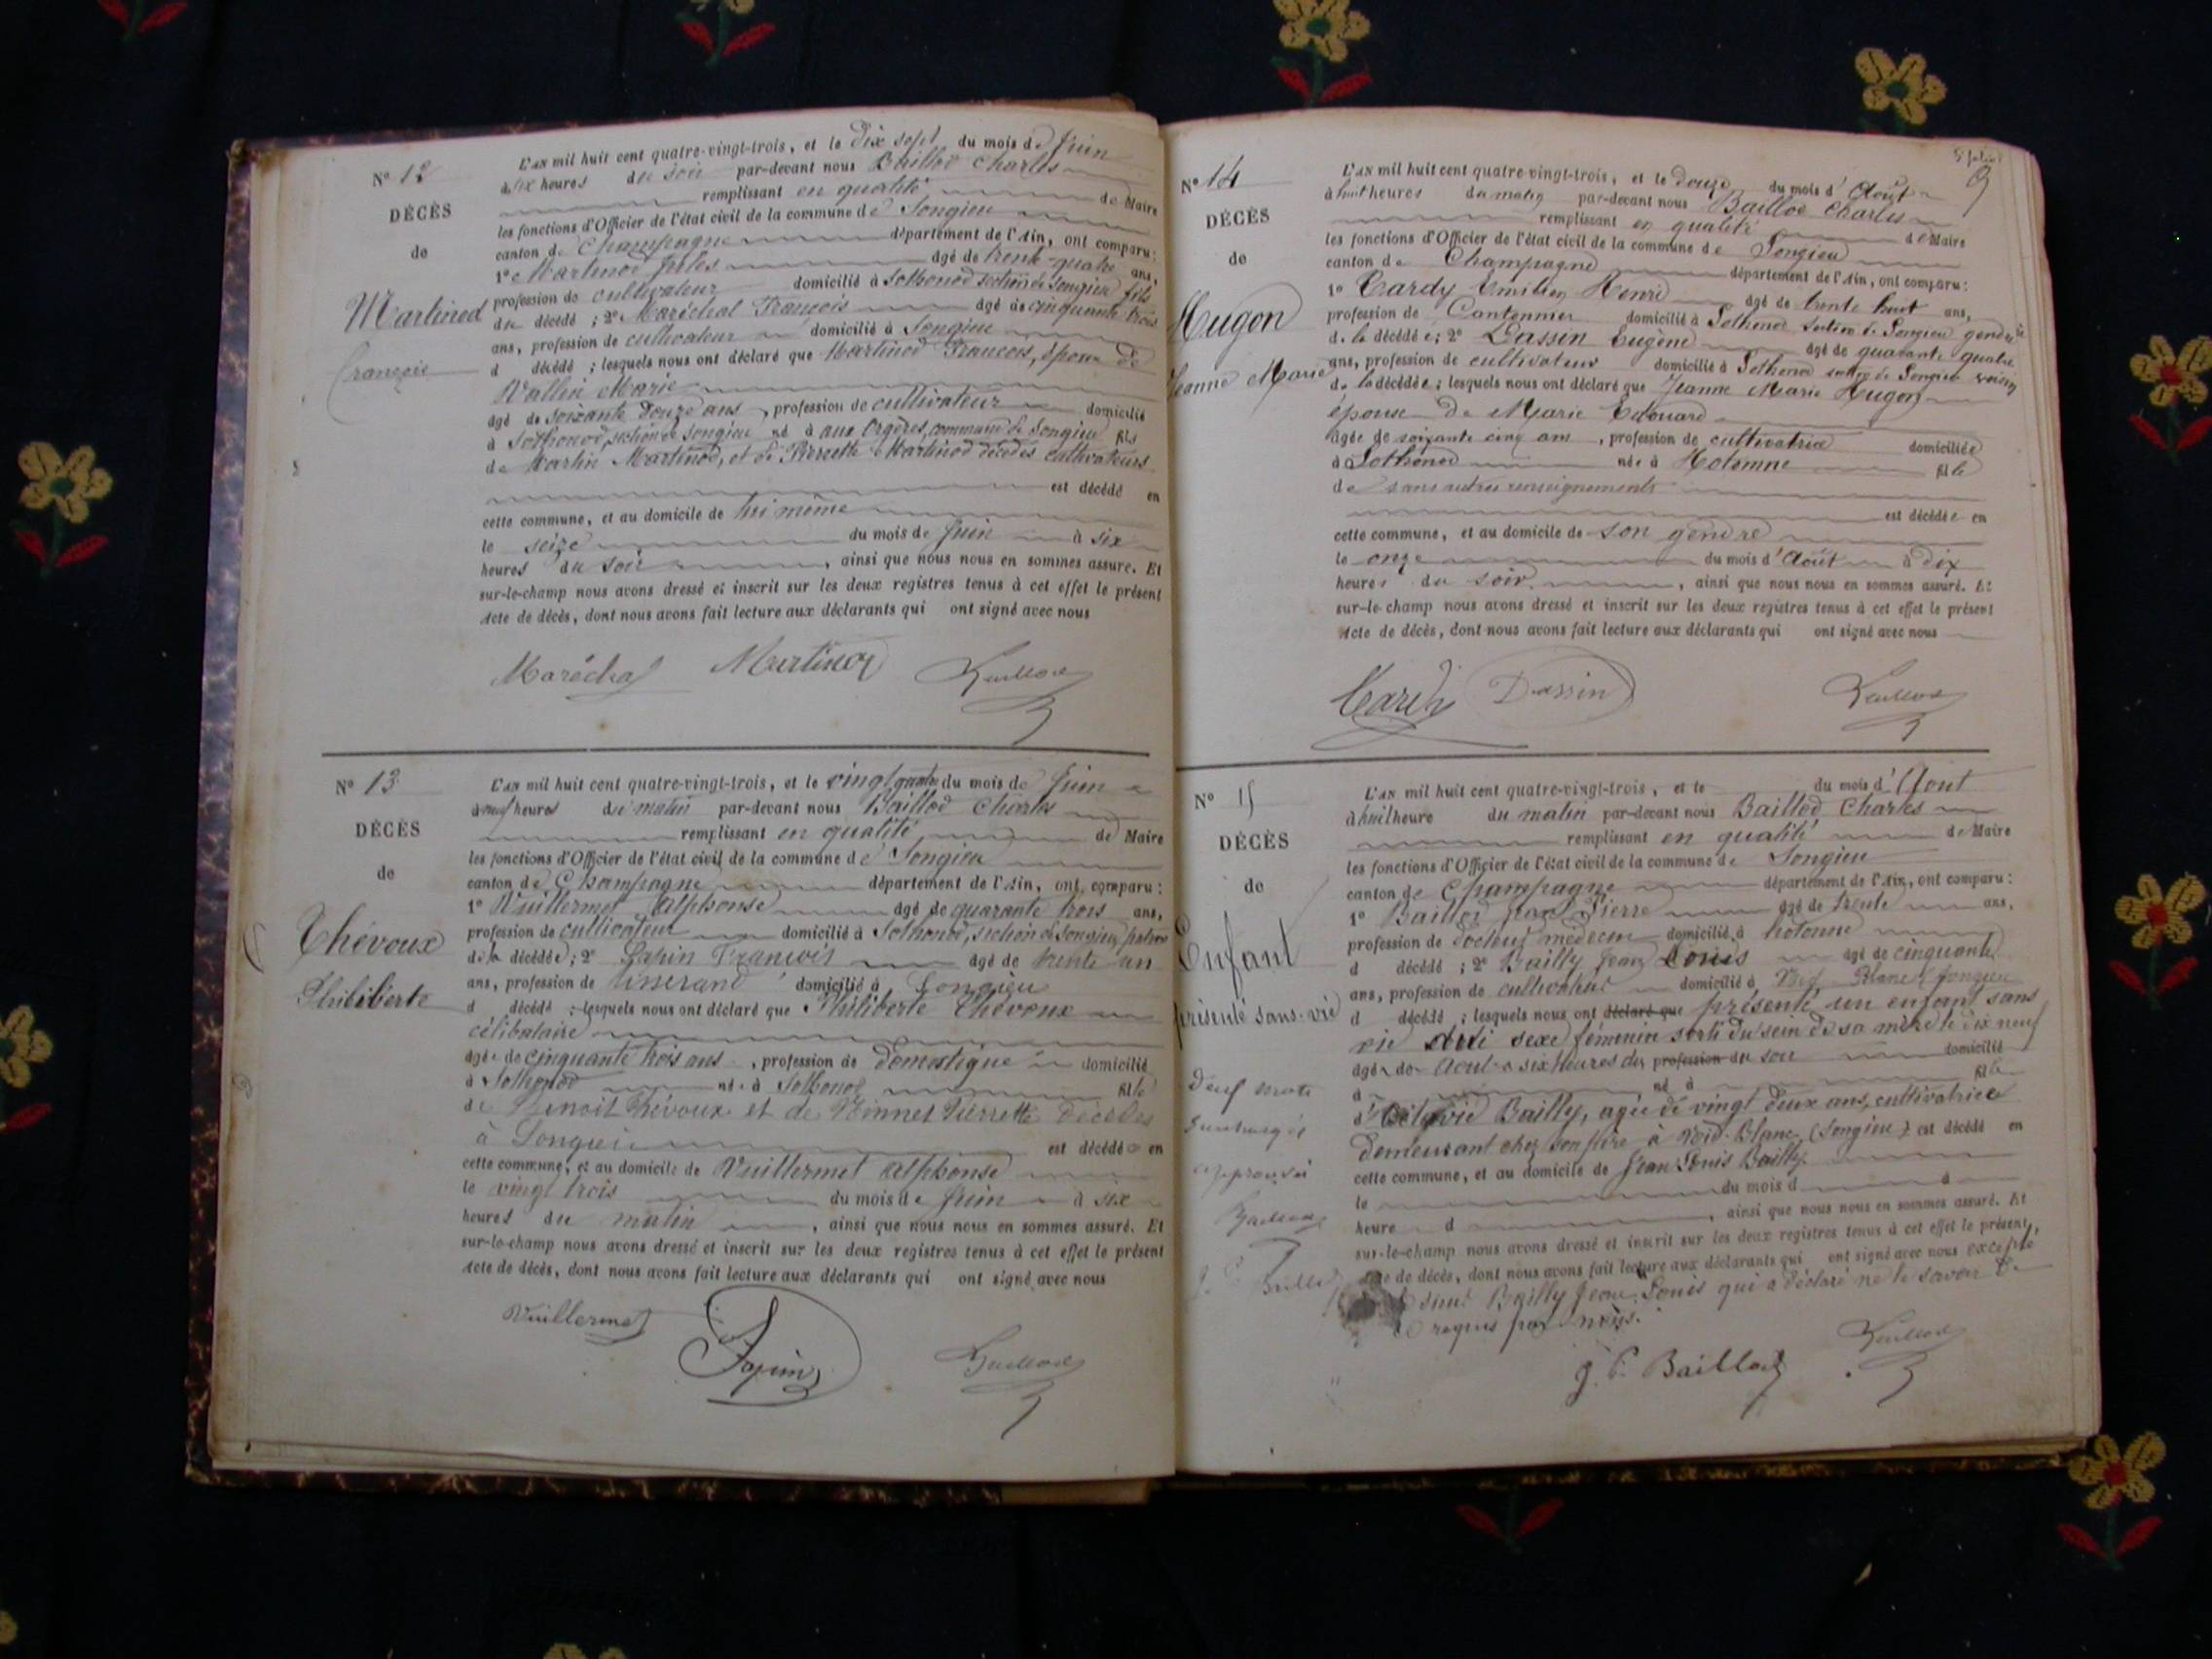 N° 12
DÉCÈS
de
Martinod
François
L'AN mil huit cent quatre-vingt-trois, et le Dix sept du mois de Juin
à six heures du soir par-devant nous Baillod Charles
remplissant en qualité de Maire
les fonctions d'Officier de l'état civil de la commune de Songieu
canton de Champagne département de l'Ain, ont comparu:
1° Martinod Jules agé de trente-quatre ans,
profession de cultivateur domicilié à Sothonod section de Songieu fils
du décédé; 2° Maréchal François agé de cinquante trois
ans, profession de cultivateur domicilié à Songieu
d décédé; lesquels nous ont déclaré que Martinod François, époux de
Vallin Marie
agé de soixante douze ans, profession de cultivateur domicilié
à Sothonod, section de Songieu né à aux Orgères, commune de Songieu fils
de Martin Martinod, et de Pierrette Martinod décédés cultivateurs
est décédé en
cette commune, et au domicile de lui même
le seize du mois de Juin à six
heures du soir, ainsi que nous nous en sommes assuré. Et
sur-le-champ nous avons dressé et inscrit sur les deux registres tenus à cet effet le présent
Acte de décès, dont nous avons fait lecture aux déclarants qui ont signé avec nous
Maréchal Martinod Baillod
N° 13
DÉCÈS
de
Thévoux
Philiberte
L'AN mil huit cent quatre-vingt-trois, et le vingt quatre du mois de Juin
à neuf heures du matin par-devant nous Baillod Charles
remplissant en qualité de Maire
les fonctions d'Officier de l'état civil de la commune de Songieu
canton de Champagne département de l'Ain, ont comparu:
1° Vuillermet Alphonse agé de quarante trois ans,
profession de cultivateur domicilié à Sothonod, section de Songieu
de la décédée; 2° François agé de trente un
ans, profession de tisserand domicilié à Songieu
d décédé; lesquels nous ont déclaré que Philiberte Thévoux
célibataire
agée de cinquante trois ans, profession de domestique domicilié
à Sothonod née à Sothonod fille
de Benoit Thévoux et de Pierrette décédés
à Songieu est décédée en
cette commune, et au domicile de Vuillermet Alphonse
le vingt trois du mois de Juin à six
heures du matin, ainsi que nous nous en sommes assuré. Et
sur-le-champ nous avons dressé et inscrit sur les deux registres tenus à cet effet le présent
Acte de décès, dont nous avons fait lecture aux déclarants qui ont signé avec nous
Vuillermet
Baillod
9
N° 14
DÉCÈS
de
Hugon
Jeanne Marie
L'AN mil huit cent quatre-vingt-trois, et le douze du mois d'Août
à huit heures du matin par-devant nous Baillod Charles
remplissant en qualité de Maire
les fonctions d'Officier de l'état civil de la commune de Songieu
canton de Champagne département de l'Ain, ont comparu:
1° Tardy Emilien Henri agé de trente huit ans,
profession de Cantonnier domicilié à Sothonod section de Songieu gendre
de la décédée; 2° Dassin Eugène agé de quarante quatre
ans, profession de cultivateur domicilié à Sothonod section de Songieu voisin
de la décédée; lesquels nous ont déclaré que Jeanne Marie Hugon
épouse de Marie Edouard
agée de soixante cinq ans, profession de cultivatrice domiciliée
à Sothonod née à Hotonne fille
de sans autres renseignements
est décédée en
cette commune, et au domicile de son gendre
le onze du mois d'Août à dix
heures du soir, ainsi que nous nous en sommes assuré. Et
sur-le-champ nous avons dressé et inscrit sur les deux registres tenus à cet effet le présent
Acte de décès, dont nous avons fait lecture aux déclarants qui ont signé avec nous
Tardy Dassin Baillod
N° 15
DÉCÈS
de
Enfant
présenté sans-vie
L'AN mil huit cent quatre-vingt-trois, et le du mois d'Aout
à huit heure du matin par-devant nous Baillod Charles
remplissant en qualité de Maire
les fonctions d'Officier de l'état civil de la commune de Songieu
canton de Champagne département de l'Ain, ont comparu:
1° Baillod Jean Pierre agé de trente ans,
profession de docteur médecin domicilié à hotonne
d décédé; 2° Bailly Jean Louis agé de cinquante
ans, profession de cultivateur domicilié à Blanc Songieu
d décédé; lesquels nous ont déclaré que présenté un enfant sans
vie du sexe féminin sorti du sein de sa mère le dix neuf
agé de Aout à six heures du profession du soir domicilié
à né à fille
d'Octavie Bailly, agée de vingt deux ans, cultivatrice
demeurant chez son père à Blanc (Songieu) est décédé en
cette commune, et au domicile de Jean Louis Bailly
le du mois d à
heure d, ainsi que nous nous en sommes assuré. Et
sur-le-champ nous avons dressé et inscrit sur les deux registres tenus à cet effet le présent
Acte de décès, dont nous avons fait lecture aux déclarants qui ont signé avec nous excepté
Bailly Jean Louis qui a déclaré ne le savoir de
requis par nous.
Neuf mots
surchargés
approuvés
Baillod
J. P. Baillod
J. P. Baillod Baillod